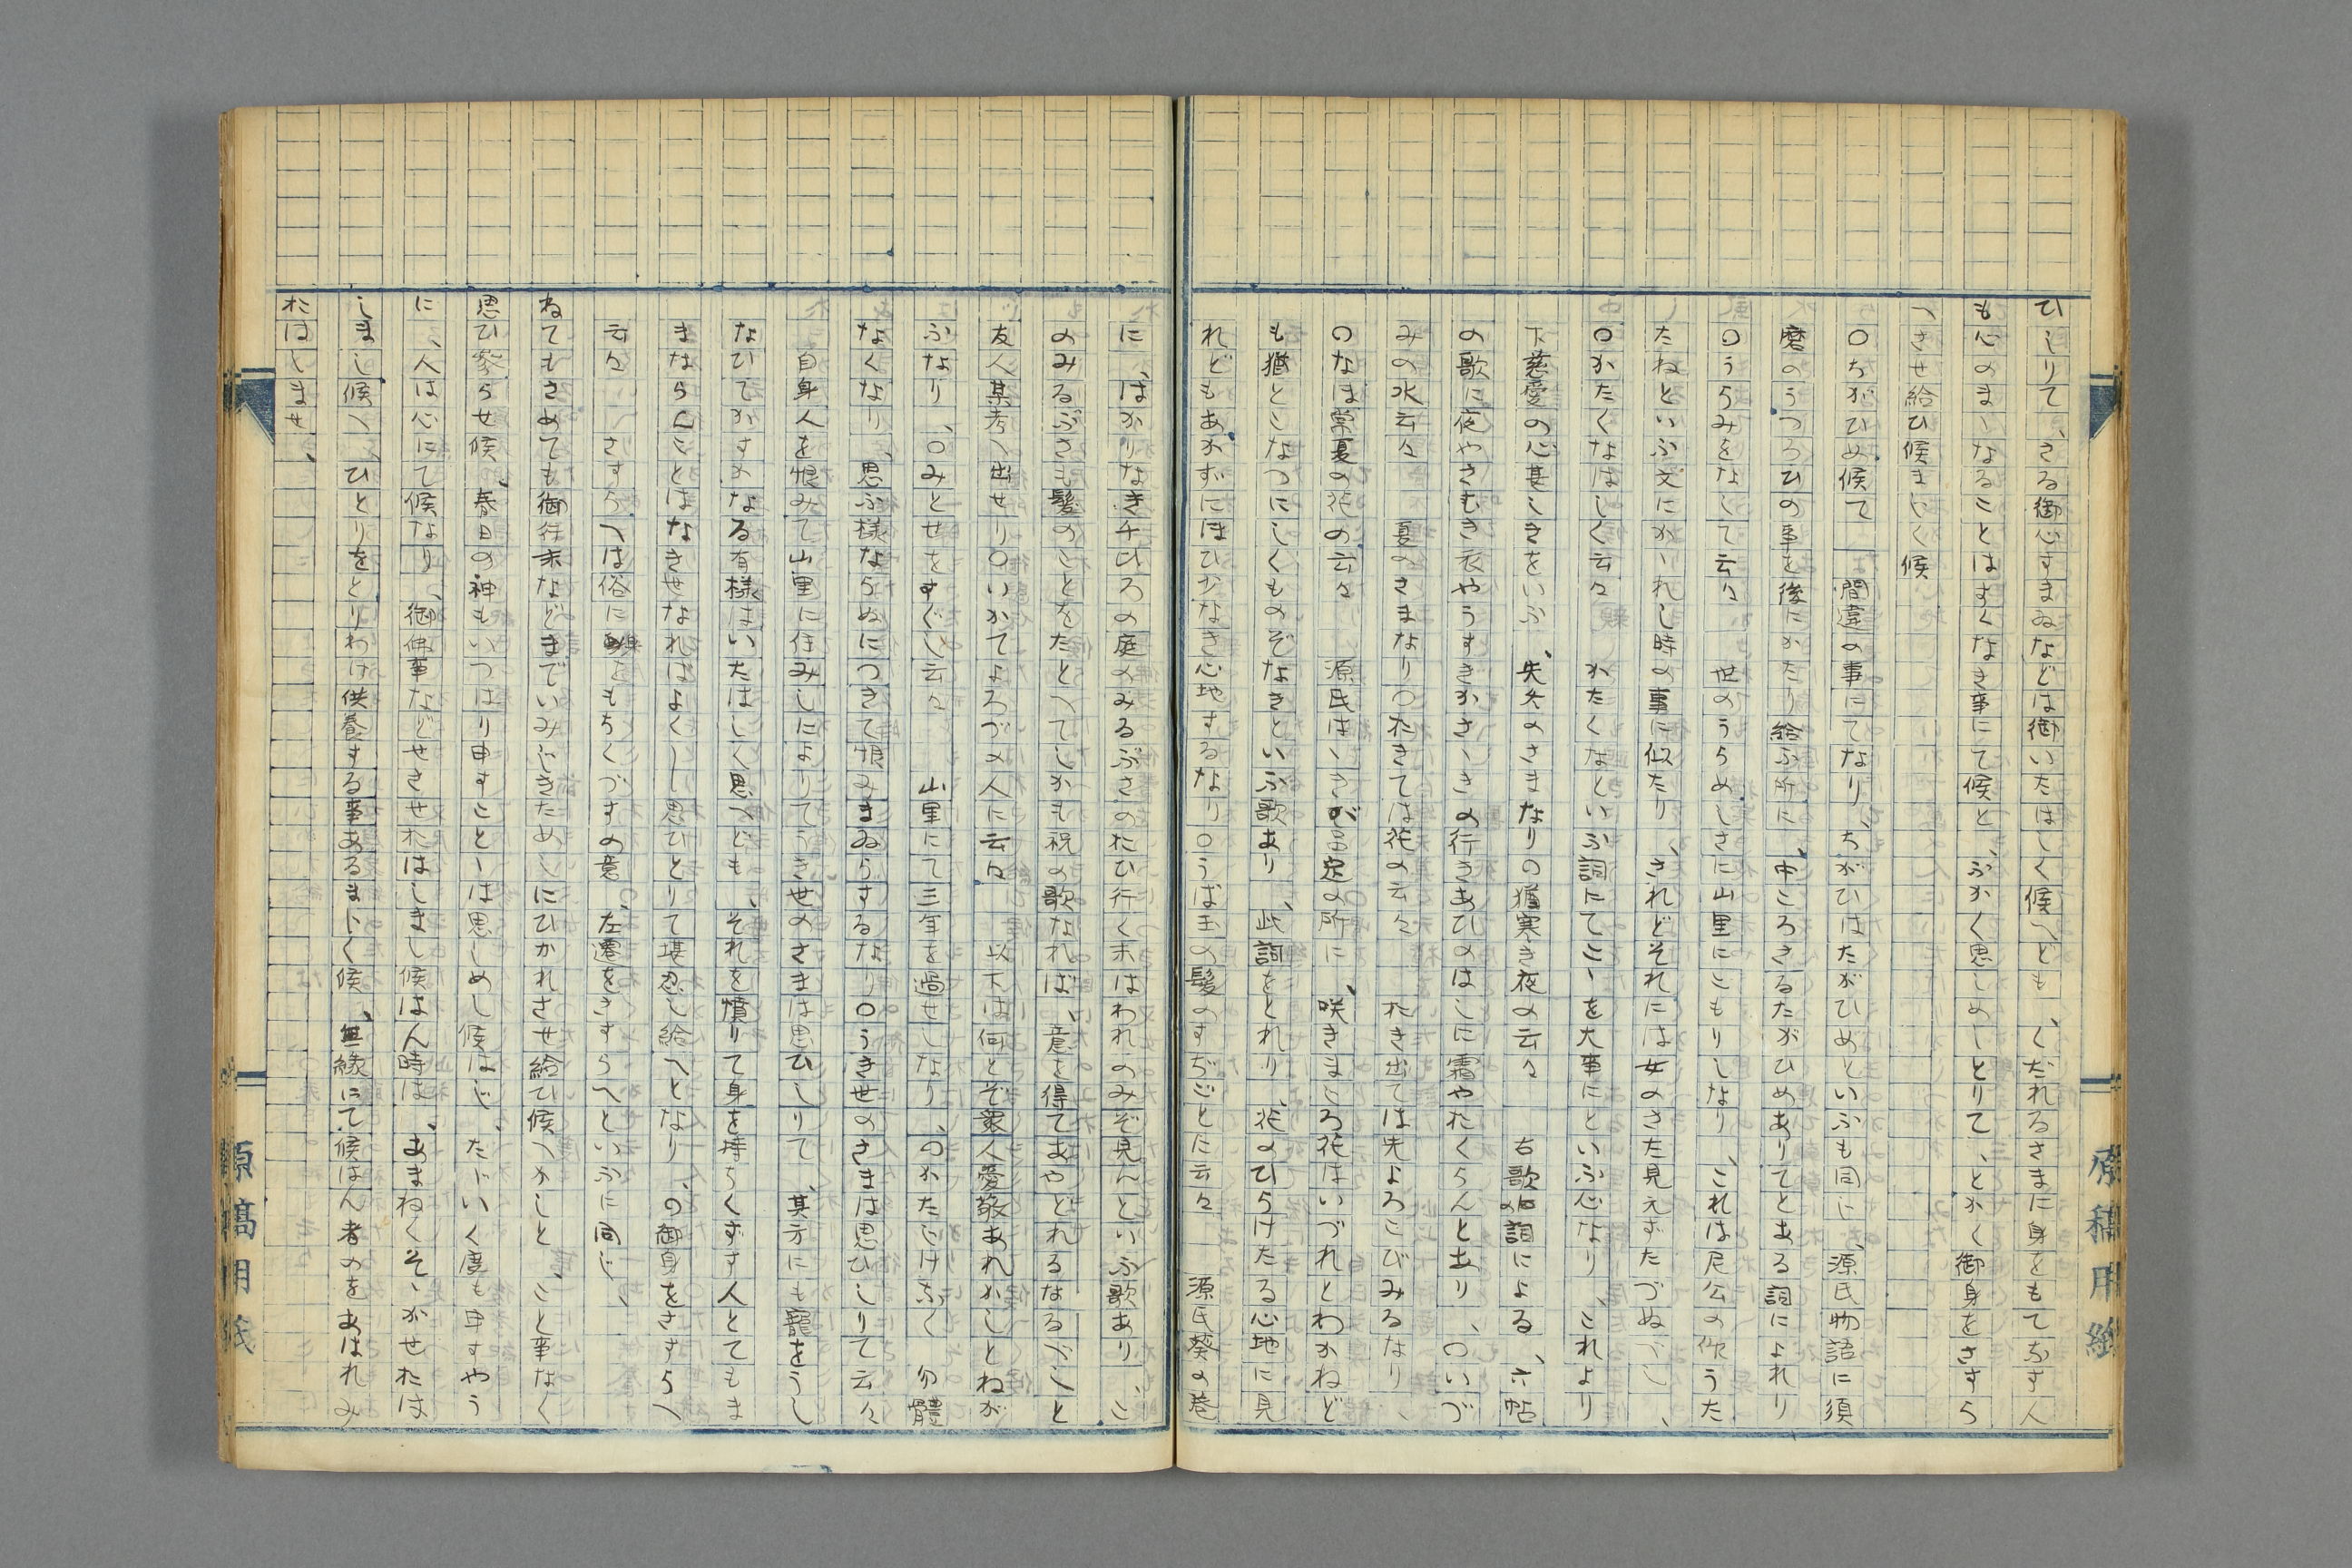 ひしりて、さる御心すまゐなどは御いたはしく候へども、くだれるさまに身をもてなす人
も心のまゝなることはすくなき事にて候と、ふかく思しめしとりて、とかく御身をさすら
へさせ給ひ候まじく候
〇ちがひめ候て　間違の事にてなり、ちがひはたがひめといふも同じ、源氏物語に須
磨のうつろひの事を後にかたり給ふ所に、中ころさるたがひめありてとある詞によれり
〇うらみをなして云々　世のうらめしさに山里にこもりしなり、これは尼公の作うた
たねといふ文にかゝれし時の事に似たり、されどそれには女のさた見えずたづぬべし、
〇かたくなはしく云々　かたくなといふ詞にてこゝを大事にといふ心なり、これより
下慈愛の心甚しきをいふ、先冬のさまなり〇猶寒き夜の云々　古歌の詞による、六帖
の歌に夜やさむき衣やうすきかさゝきの行きあひのはしに霜やおくらんとあり、〇いづ
みの水云々　夏のさまなり〇たきては花の云々　たき出ては先よろこびみるなり、
〇なま常夏の花の云々　源氏はゝきが品定の所に、咲きまじる花はいづれとわかねど
も猶とこなつにしくものぞなきといふ歌あり、此詞をとれり、花のひらけたる心地に見
れどもあかずにほひ少なき心地するなり〇うば玉の髪のすぢごとに云々　源氏葵の巻
に、はかりなき千ひろの庭のみるぶさのおひ行く末はわれのみぞ見んといふ歌あり、こ
のみるぶさも髪のことをたとへてしかも祝の歌なれば、意を得てあやどれるなるべしと
友人某考へ出せり〇いかてよろづの人に云々　以下は何とぞ衆人愛敬あれかしとねが
ふなり、〇みとせをすぐし云々　山里にて三年を過せしなり、〇かたじけなく　勿體
なくなり、思ふ様ならぬにつきて恨みまゐらするなり〇うき世のさまは思ひしりて云々
自身人を恨みて山里に住みしによりてうき世のさまは思ひしりて、其方にも寵をうし
なひてかすかなる有様はいたはしく思へども、それを憤りて身を持ちくずす人とてもま
まならんことはなきせなればよくし思ひとりて堪忍し給へとなり、〇御身をさすらへ
云々　さすらへは俗に身をもちくづすの意、左遷をさすらへといふに同じ、
ねてもさめても御行末などまでいみじきためしにひかれさせ給ひ候へかしと、こと事なく
思ひ参らせ候、春日の神もいつはり申すことゝは思しめし候はじ、たゞいく度も申すやう
に、人は心にて候なり、御佛事などせさせおはしまし候はん時は、あまねくそゝがせおは
しまし候へ、ひとりをとりわけ供養する事あるまじく候、無縁にて候はん者のをあはれみ
おはしませ、
原稿用紙
原稿用紙